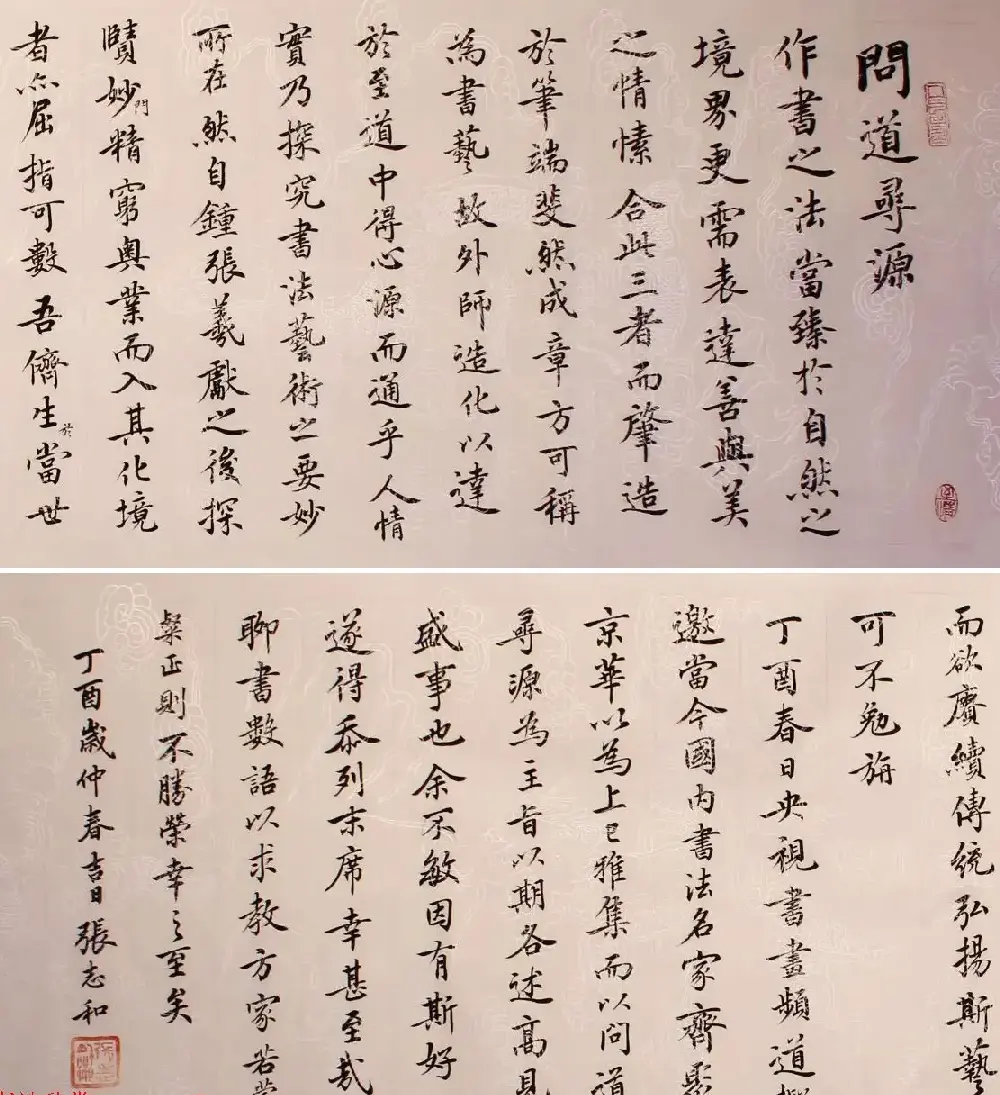 問道尋源
作書之法當臻於自然之
境界更需表達善與美
之情愫合此三者而肇造
於筆端斐然成章方可稱
為書藝故外師造化以達
於至道中得心源而通乎人情
實乃探究書法藝術之要妙
所在然自鍾張羲獻之後探
賾妙門精窮奧業而入其化境
者亦屈指可數吾儕生於當世
而欲賡續傳統弘揚斯藝
可不勉旃
丁酉春日央視書畫頻道
邀當今國內書法名家齊聚
京華以為上巳雅集而以問道
尋源為主旨以期各述高見
盛事也余不敏因有斯好
遂得忝列末席幸甚至哉
聊書數語以求教方家若
粲正則不勝榮幸之至矣
丁酉歲仲春吉日張志和